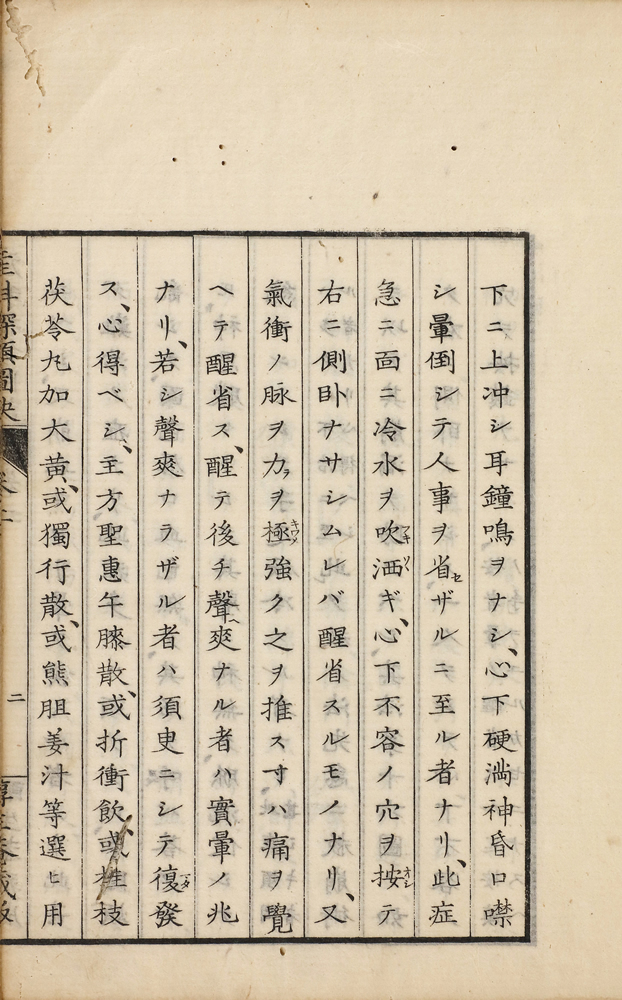 下ニ上冲シ耳鐘鳴ヲナシ、心下硬満神昏口噤
シ暈倒シテ人事ヲ省セザルニ至ル者ナリ、此症
急ニ面ニ冷水ヲ吹洒ギ、心下不容ノ穴ヲ按テ
右ニ側卧ナサシムレバ醒省スルモノナリ、又
氣衝ノ脉ヲ力ラヲ極強ク之ヲ推ス寸ハ痛ヲ覺
ヘテ醒省ス、醒テ後チ聲爽ナル者ハ實暈ノ兆
ナリ、若シ聲爽ナラザル者ハ須臾ニシテ復發
ス、心得ベシ、主方聖惠午膝散、或折衝飲、或桂枝
茯苓丸加大黄、或獨行散、或熊胆姜汁等選ヒ用
二